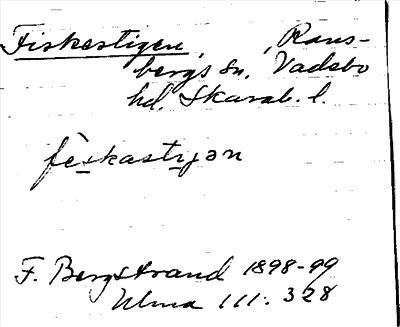 Fiskestigen, Rans-
bergs sn. Vadsbo
hd. Skarab. l.
fèskastıgən
F. Bergstrand 1898-99
Ulma 111: 328